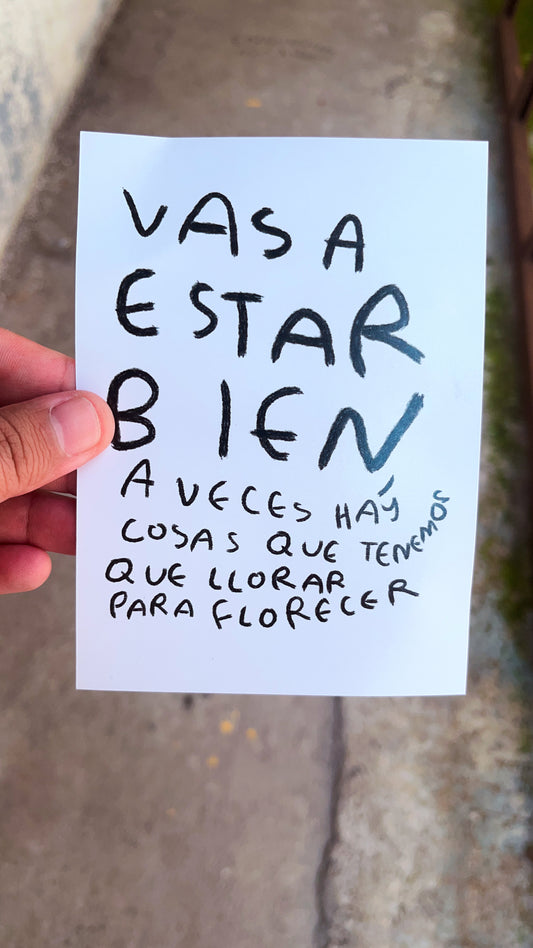 VAS A
ESTAR
BIEN
A VECES HAÝ
COSAS QUE TENEMOS
QUE LLORAR
PARA FLORECER